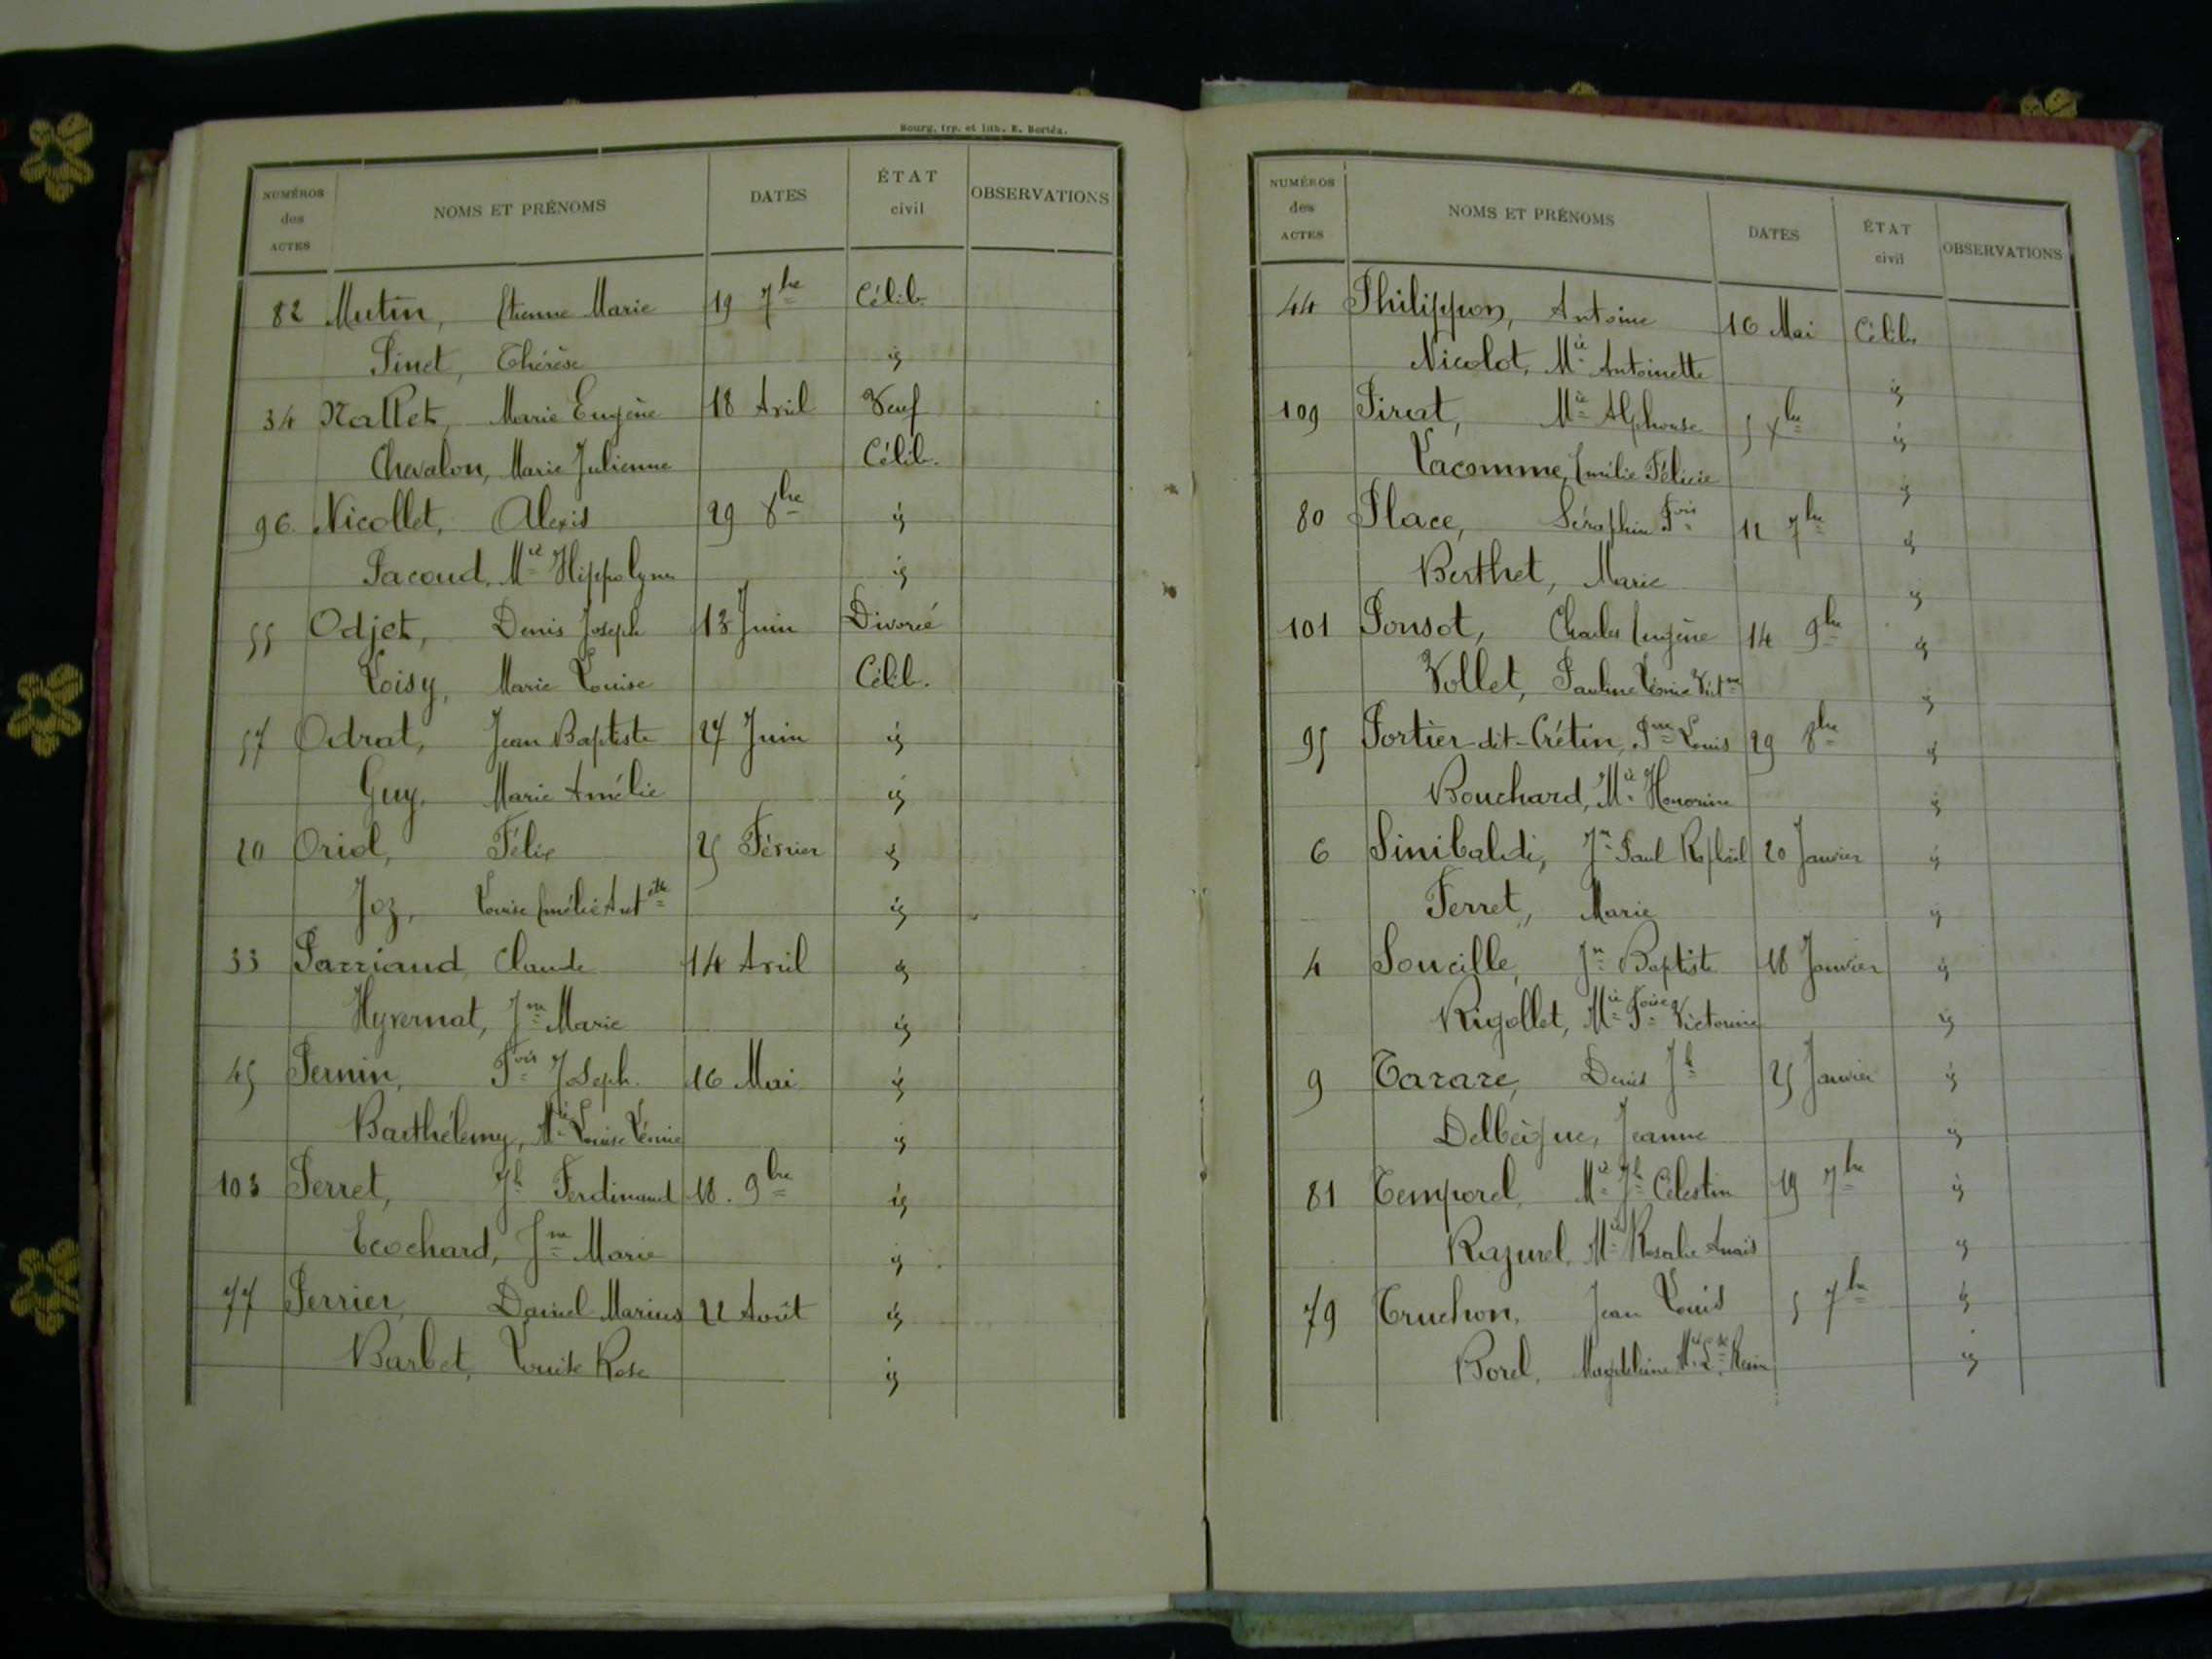 Bourg, typ. et lith. E. Bertéa.
NUMÉROS des ACTES NOMS ET PRÉNOMS DATES ÉTAT civil OBSERVATIONS
82 Mutin, Etienne Marie 19 7bre Célib.
Pinet, Thérèse id
34 Nallet, Marie Eugène 18 Avril Veuf
Chevalon, Marie Julienne Célib.
96 Nicollet, Alexis 29 8bre id
Pacoud, Mie id
55 Odjet, Denis Joseph 13 Juin Divorcé
Loisy, Marie Louise Célib.
57 Odrat, Jean Baptiste 27 Juin id
Guy, Marie Amélie id
20 Oriol, Félix 25 Février id
Joz, Louise Emélie Antette id
33 Parriaud, Claude 14 Avril id
Hyvernat, Jne Marie id
45 Pernin, Fois Joseph 16 Mai id
Barthélemy, Mie Louise Lénie id
103 Perret, Jh Ferdinand 18. 9bre id
Ecochard, Jne Marie id
77 Perrier, Daniel Marius 22 Août id
Barbet, Louise Rose id
NUMÉROS des ACTES NOMS ET PRÉNOMS DATES ÉTAT civil OBSERVATIONS
44 Philippon, Antoine 16 Mai Célib.
Nicolot, Mie Antoinette id
109 Pirat, Mie Alphonse 5 Xbre id
Lacomme, Emélie Félicie id
80 Place, Séraphin Fois 12 7bre id
Berthet, Marie id
101 Ponsot, Charles Eugène 14 9bre id
Vollet, Pauline Lénie Victne id
95 Portier-dit-Crétin, Louis 29 8bre id
Bouchard, Mie Honorine id
6 Sinibaldi, Jn Paul Raphaël 20 Janvier id
Ferret, Marie id
4 Souville, Jn Baptiste 18 Janvier id
Rigollet, Mie Foise Victorine id
9 Tarare, Denis Jh 25 Janvier id
Delbègue, Jeanne id
81 Temporel, Mie Jh Célestin 19 7bre id
Razurel, Mie Rosalie Anaïs id
79 Truchon, Jean Louis 5 7bre id
Borel, Magdeleine Mie Lse id